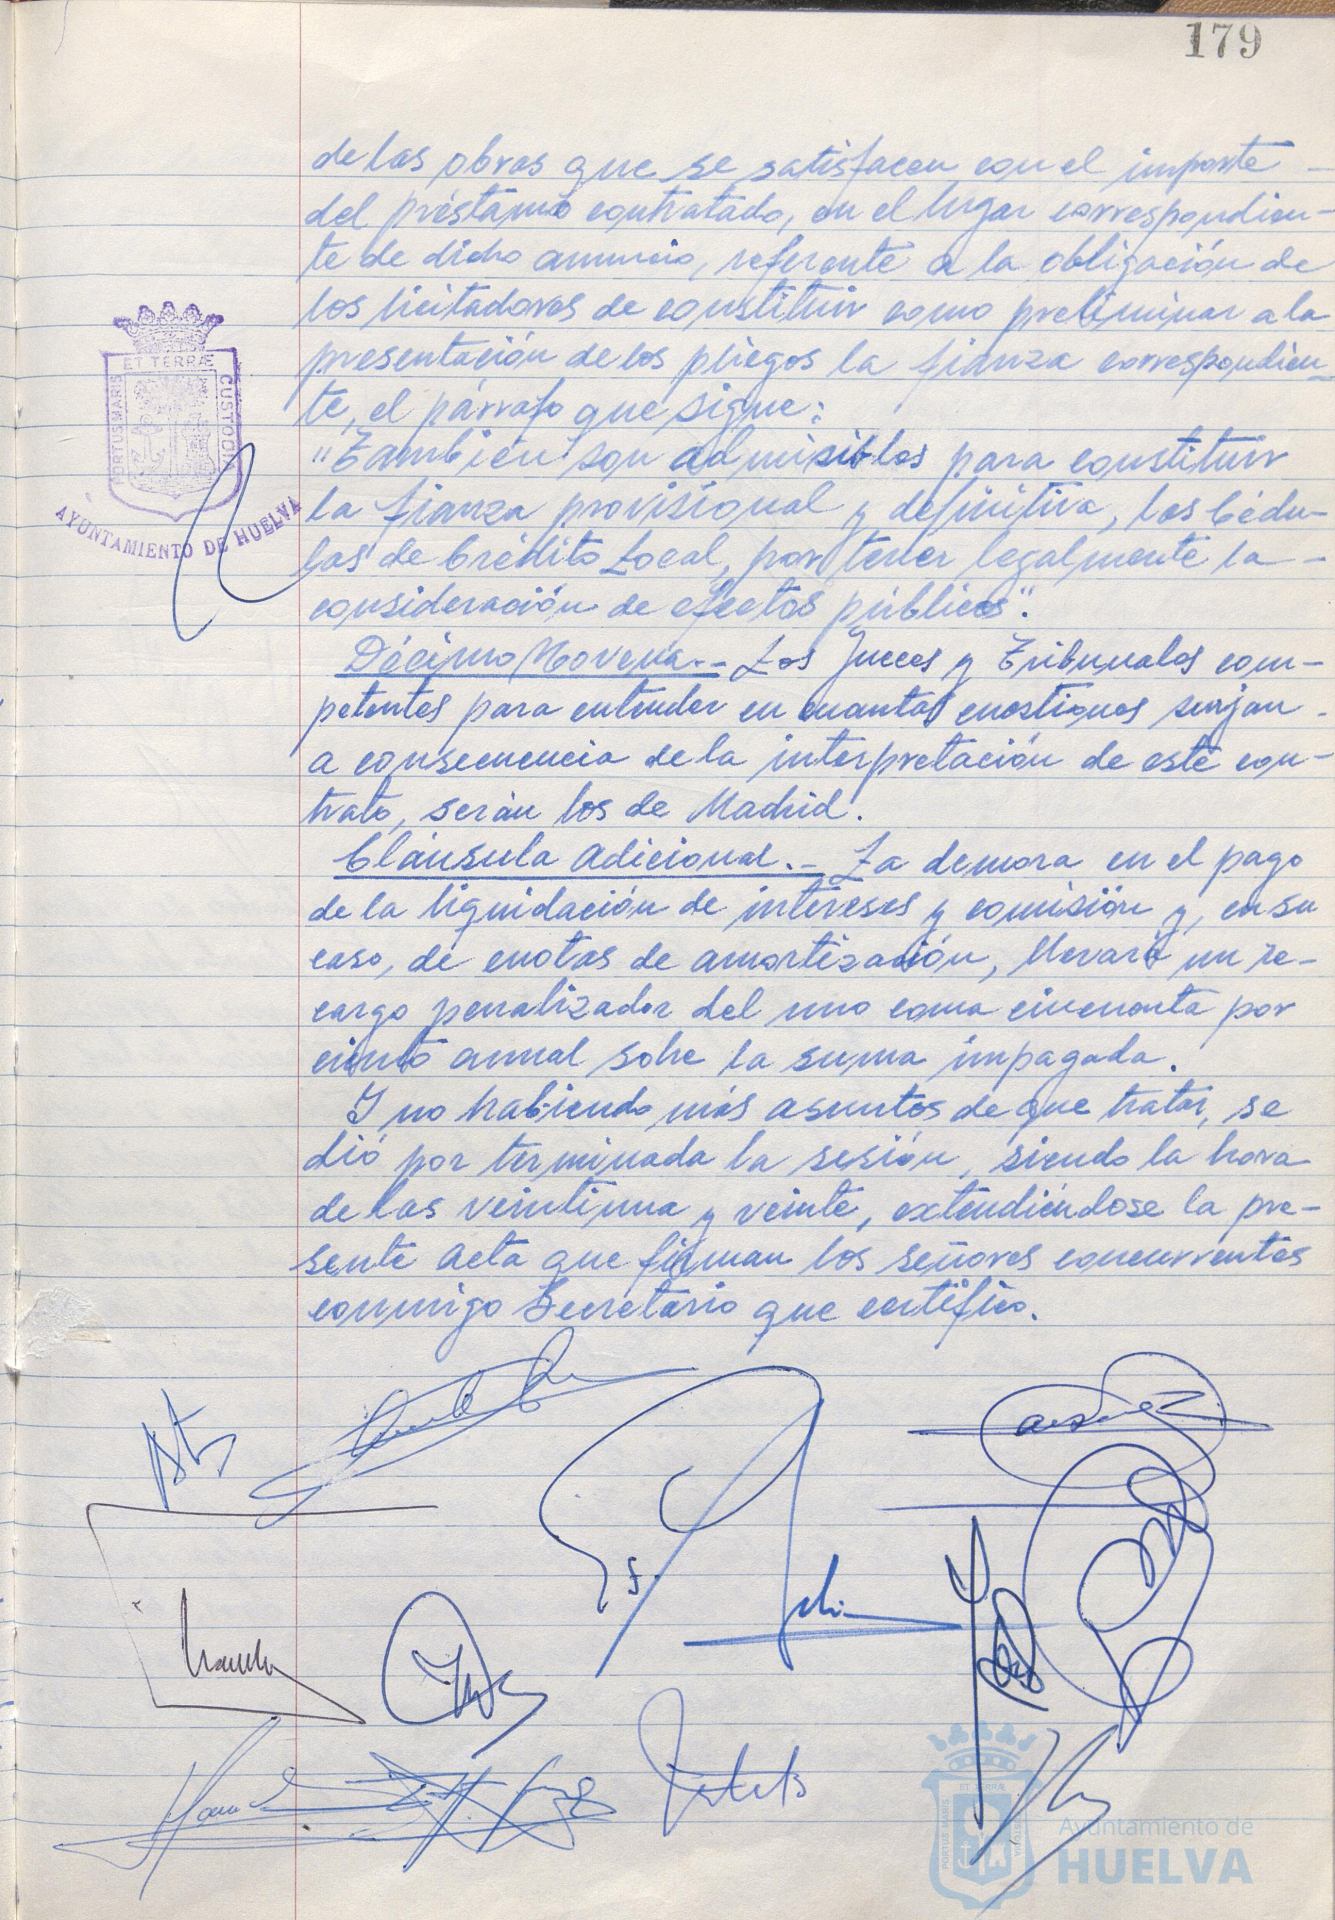 179
de las obras que se satisfacen con el importe
del préstamo contratado, en el lugar correspondien-
te de dicho anuncio, referente a la obligación de
los licitadores de constituir como preliminar a la
presentación de los pliegos la fianza correspondien-
te, el párrafo que sigue:
"También son admisibles para constituir
la fianza provisional y definitiva, las Cédu-
las de Crédito Local, por tener legalmente la
consideración de efectos públicos".
Décimo Novena.- Los Jueces y Tribunales com-
petentes para entender en cuantas cuestiones surjan
a consecuencia de la interpretación de este con-
trato, serán los de Madrid.
Cláusula adicional.- La demora en el pago
de la liquidación de intereses y comisión y, en su
caso, de cuotas de amortización, llevará un re-
cargo penalizador del uno coma cincuenta por
ciento anual sobre la suma impagada.
Y no habiendo más asuntos de que tratar, se
dió por terminada la sesión, siendo la hora
de las veintiuna y veinte, extendiéndose la pre-
sente Acta que firman los señores concurrentes
conmigo Secretario que certifico.
PORTUS MARIS ET TERRÆ CUSTODIA
AYUNTAMIENTO DE HUELVA
PORTUS MARIS ET TERRÆ CUSTODIA
Ayuntamiento de
HUELVA